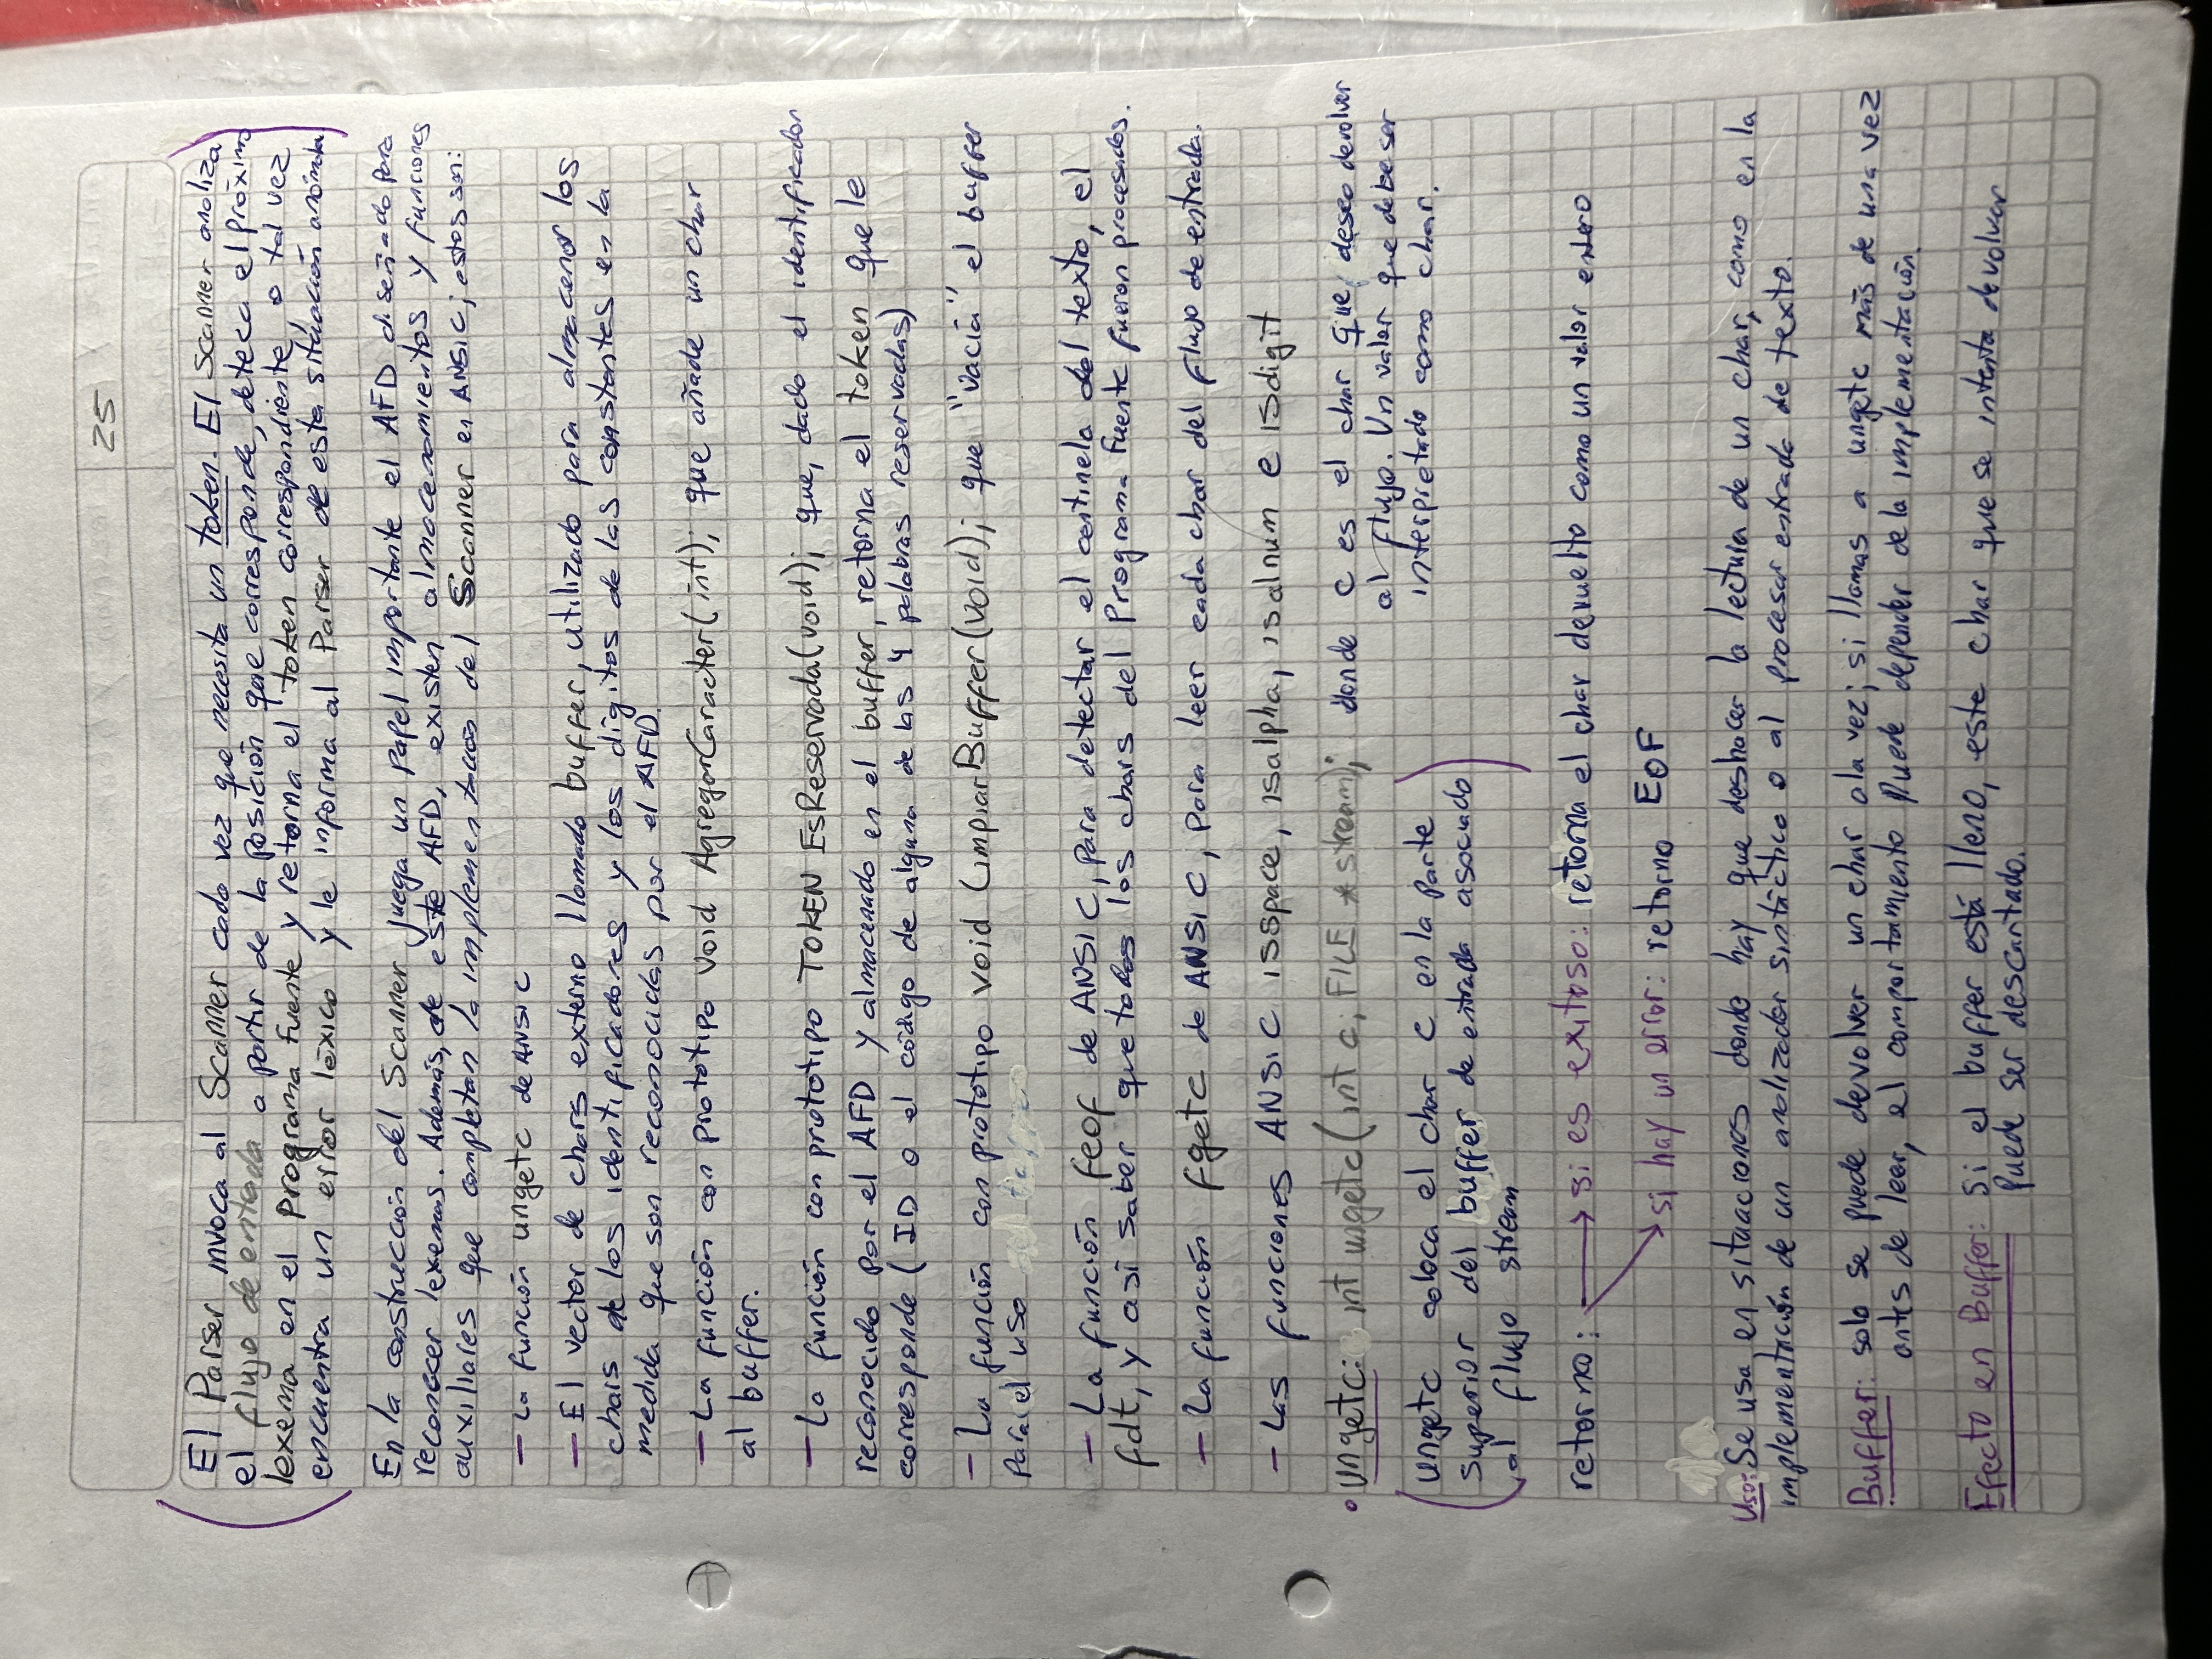 25
El Parser invoca al Scanner cada vez que necesita un token. El Scanner analiza
el flujo de entrada a partir de la posición que corresponde, deteca el próximo
lexema en el programa fuente y retorna el token correspondiente, o tal vez
encuentra un error léxico y le informa al Parser de esta situación anómala
En la construcción del Scanner juega un papel importante el AFD diseñado para
reconocer lexemas. Además, de este AFD, existen almacenamientos y funciones
auxiliares que completan la implementación del Scanner en ANSI C; estos son:
- La función ungetc de ANSI C
- El vector de chars externo llamado buffer, utilizado para almacenar los
chars de los identificadores y los dígitos de las constantes en la
medida que son reconocidas por el AFD.
- La función con prototipo void AgregarCaracter(int); que añade un char
al buffer.
- La función con prototipo TOKEN EsReservada(void); que, dado el identificador
reconocido por el AFD y almacenado en el buffer, retorna el token que le
corresponde (ID o el código de alguna de las 4 palabras reservadas)
- La función con prototipo void LimpiarBuffer(void); que "vacia" el buffer
para el uso
- La función feof de ANSI C, para detectar el centinela del texto, el
fdt, y así saber que todos los chars del Programa Fuente fueron procesados.
- La función fgetc de ANSI C, para leer cada char del flujo de entrada.
- Las funciones ANSI C isspace, isalpha, isalnum e isdigit
• ungetc: int ungetc(int c, FILE *stream); donde c es el char que deseo devolver
al flujo. Un valor que debe ser
interpretado como char.
ungetc coloca el char c en la parte
superior del buffer de entrada asociado
al flujo stream
retorno: → si es exitoso: retorna el char devuelto como un valor entero
→ si hay un error: retorno EOF
Uso: Se usa en situaciones donde hay que deshacer la lectura de un char, como en la
implementación de un analizador sintáctico o al procesar entrada de texto.
Buffer: solo se puede devolver un char a la vez; si llamas a ungetc más de una vez
antes de leer, el comportamiento puede depender de la implementación.
Efecto en Buffer: Si el buffer está lleno, este char que se intenta devolver
puede ser descartado.